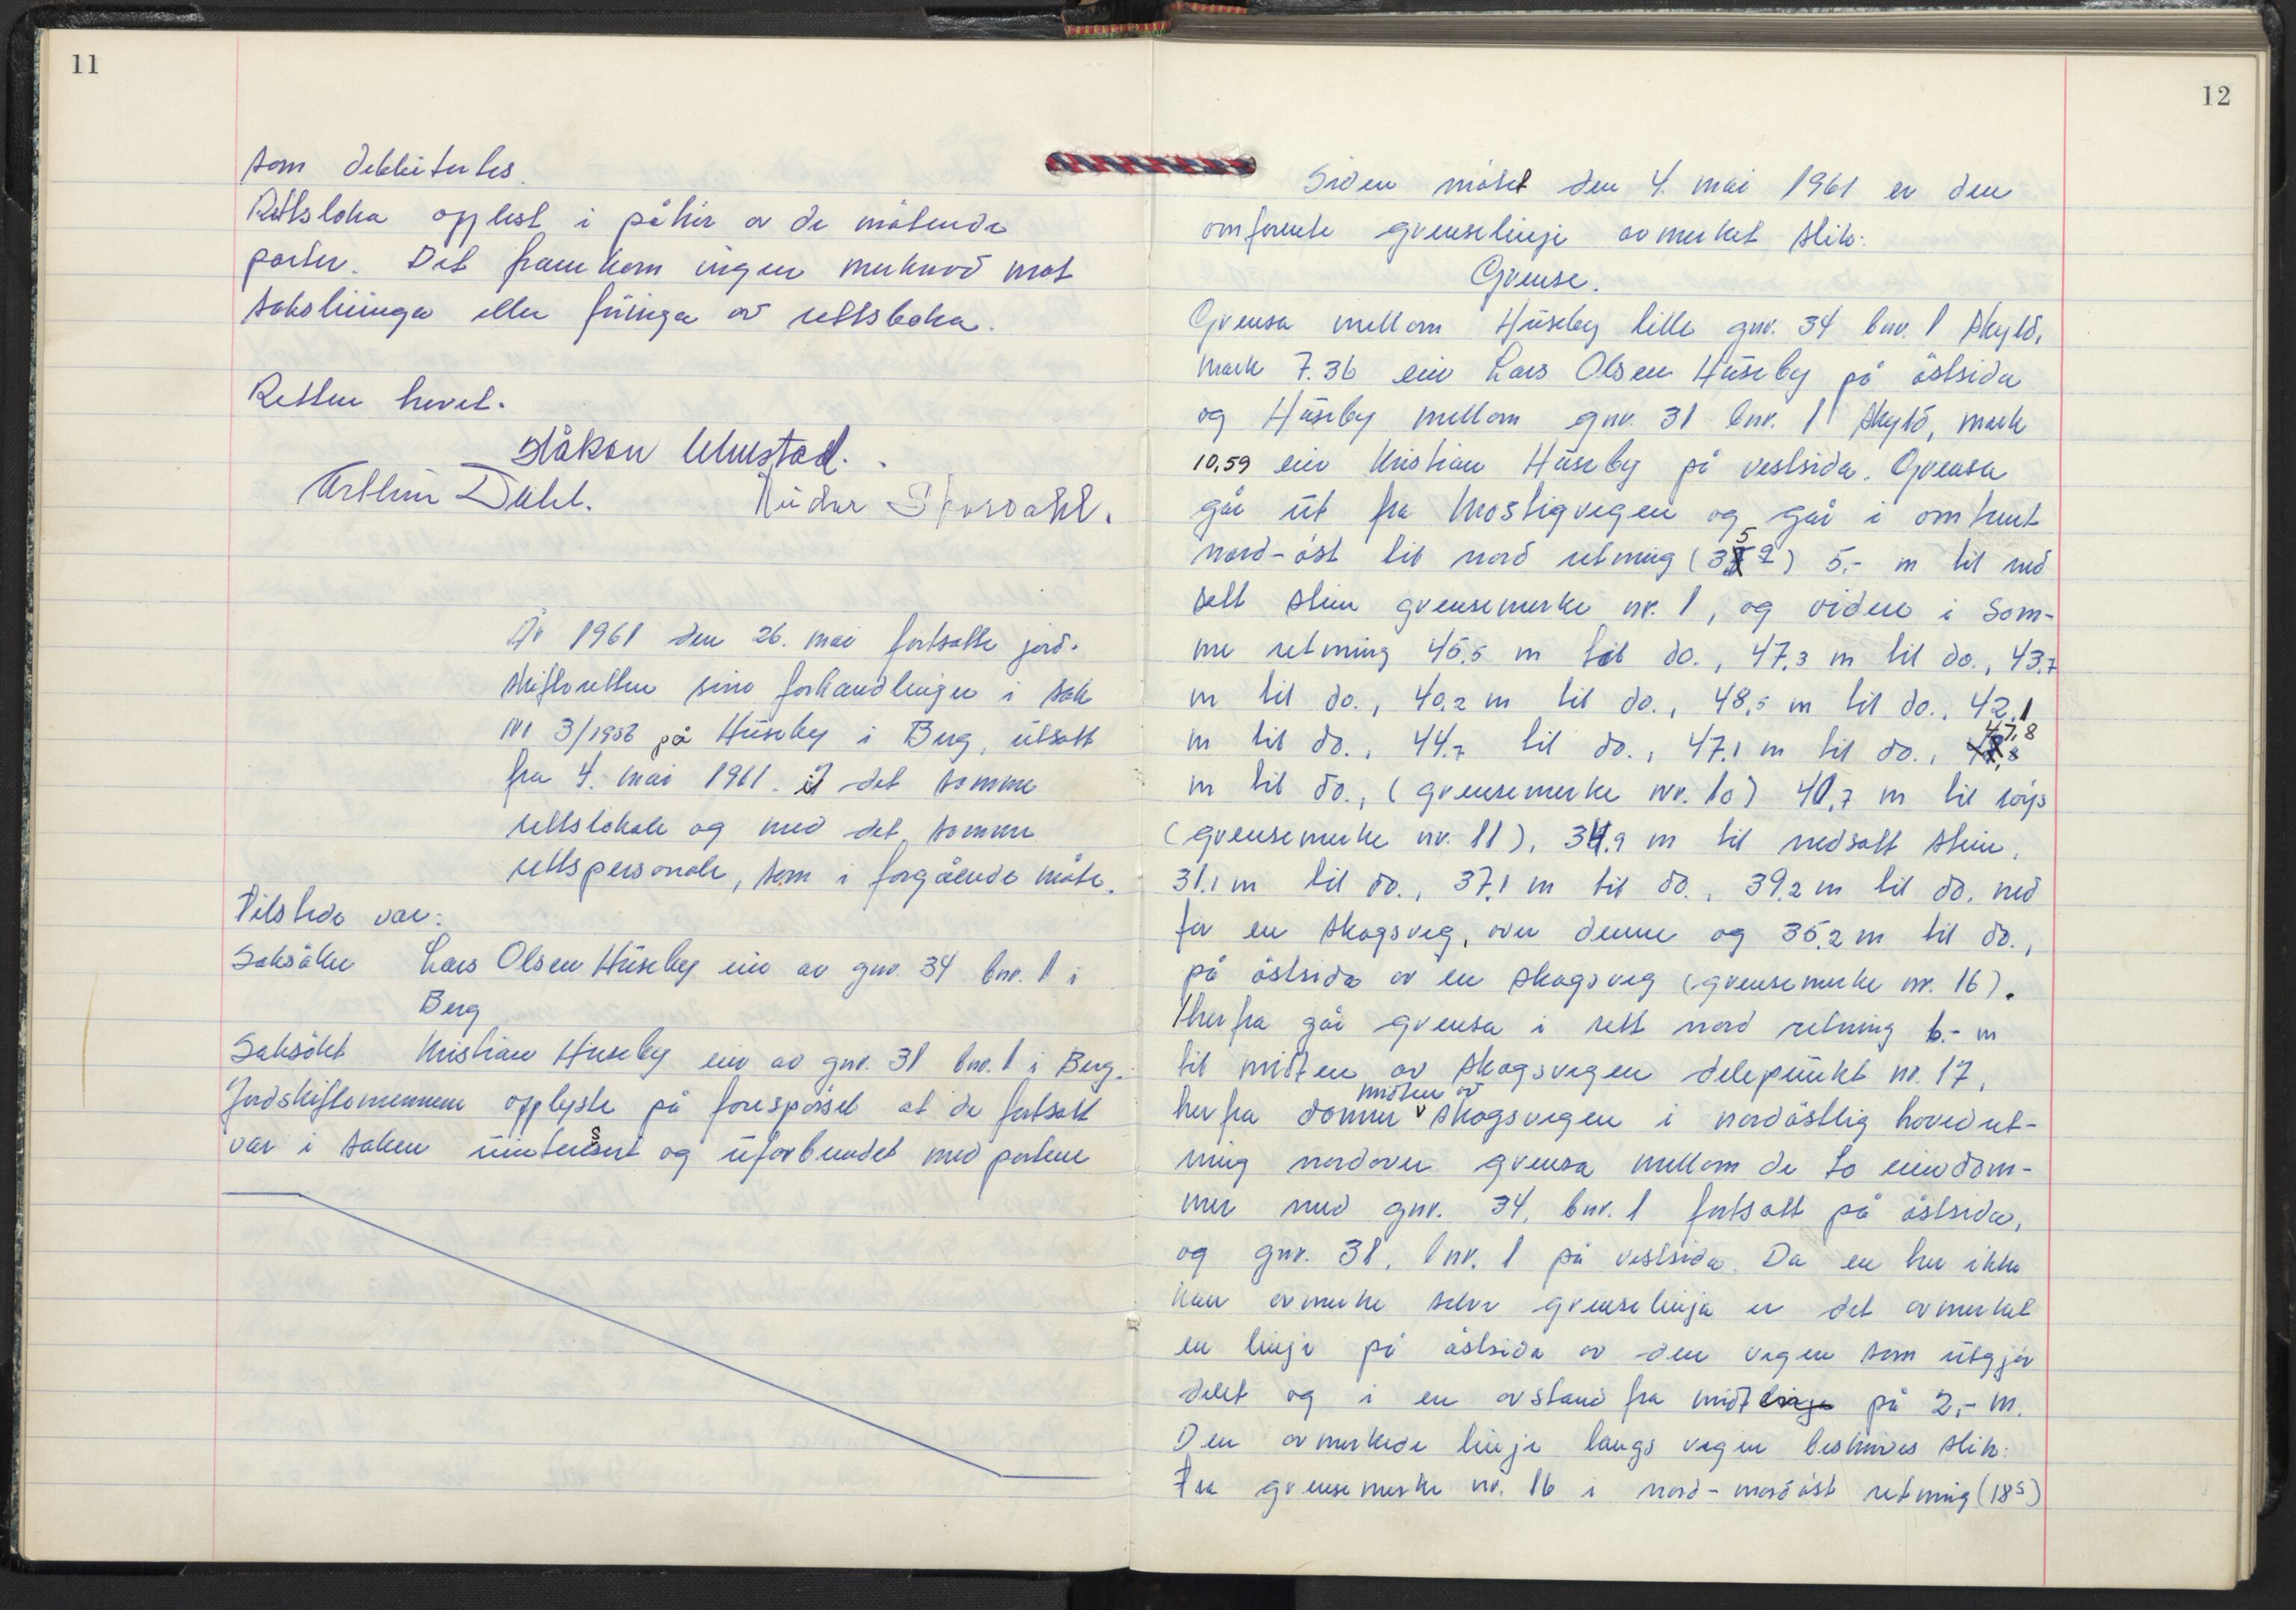 11
som dekkitertes.
Rettsboka opplest i påhør av de møtende
parter. Det framkom ingen merknad mot
saksliinga eller føringa av rettsboka.
Retten hevet.
Håkon Ulmstad.
Arthur Dahl. Reidar Stordahl.
År 1961 den 26. mai fortsatte jord-
skifteretten sine forhandlinger i sak
nr 3/1956 på Huseby i Berg, utsatt
fra 4. mai 1961. i det samme
rettslokale og med det samme
rettspersonale, som i forgående møte.
Tilstede var:
Saksøker Lars Olsen Huseby eier av gnr. 34 bnr. 1 i
Berg
Saksøkt Kristian Huseby eier av gnr. 31 bnr. 1 i Berg.
Jordskiftemennene opplyste på forespørsel at de fortsatt
var i saken uinteresert og uforbundet med partene
12
Siden møtet den 4. mai 1961 er den
omforente grenselinje avmerket slik:
Grense.
Grensa mellom Huseby lille gnr. 34 bnr. 1 skyld,
mark 7.36 eier Lars Olsen Huseby på østsida
og Huseby mellom gnr. 31 bnr. 1 skyld, mark
10,59 eier Kristian Huseby på vestsida. Grensa
går ut fra Mostigvegen og går i omtrent
nord-øst til nord retning (35 g) 5.- m til ned
satt stein grensemerke nr. 1, og videre i sam-
me retning 45.5 m til do., 47.3 m til do., 43.7
m til do., 40.2 m til do., 48,5 m til do., 42.1
m til do., 44.7 til do., 47.1 m til do., 47,8
m til do., (grensemerke nr. 10) 40,7 m til røys
(grensemerke nr. 11), 34.9 m til nedsatt stein,
31.1 m til do., 37.1 m til do., 39.2 m til do. ned
for en skogsveg, over denne og 35.2 m til do.,
på østsida av en skogsveg (grensemerke nr. 16).
Herfra går grensa i rett nord retning 6.- m
til midten av skogsvegen delepunkt nr. 17,
herfra danner midten av skogsvegen i nordøstlig hovedret-
ning nordover grensa mellom de to eiendom-
mer med gnr. 34, bnr. 1 fortsatt på østsida,
og gnr. 31, bnr. 1 på vestsida. Da en her ikke
kan avmerke selve grenselinja er det avmerket
en linje på østsida av den vegen som utgjør
delet og i en avstand fra midtlinja på 2,- m.
Den avmerkede linje langs vegen beskrives slik:
Fra grensemerke nr. 16 i nord-nordøst retning (18 s)